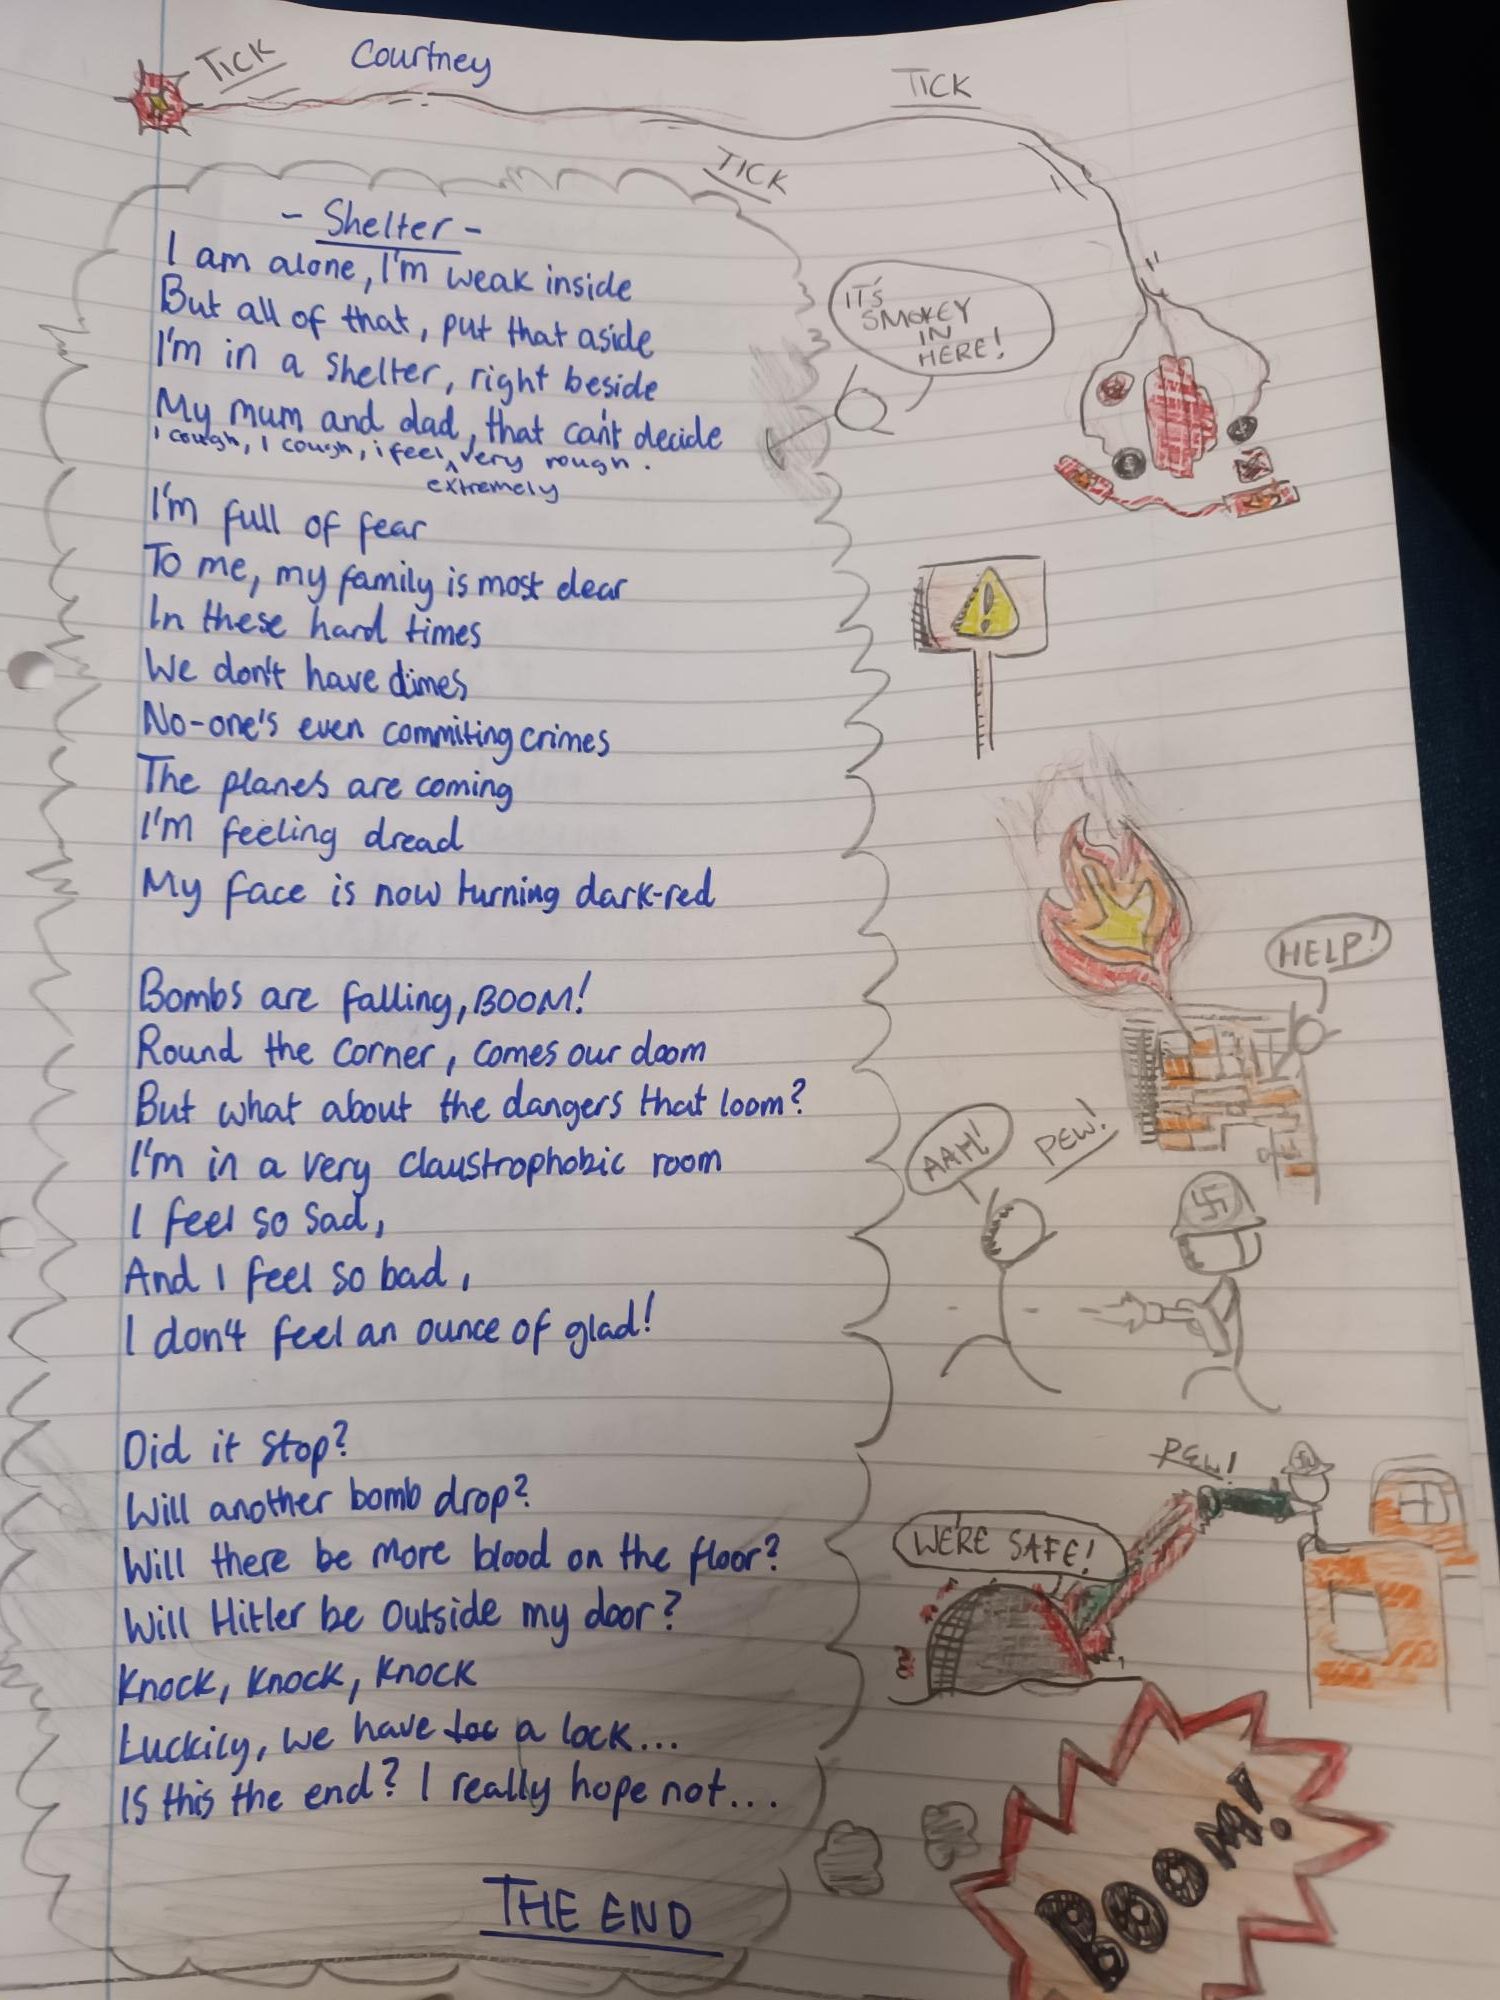 TICK
Courtney
TICK
TICK
- Shelter -
I am alone, I'm weak inside
But all of that, put that aside
I'm in a shelter, right beside
My mum and dad, that can't decide
I cough, I cough, i feel ^ very rough.
extremely
I'm full of fear
To me, my family is most dear
In these hard times
We don't have dimes
No-one's even commiting crimes
The planes are coming
I'm feeling dread
My face is now turning dark-red
Bombs are falling, BOOM!
Round the corner, comes our doom
But what about the dangers that loom?
I'm in a very claustrophobic room
I feel so sad,
And I feel so bad,
I don't feel an ounce of glad!
Did it stop?
Will another bomb drop?
Will there be more blood on the floor?
Will Hitler be outside my door?
Knock, knock, knock
Luckily, we have a lock...
Is this the end? I really hope not...
THE END
IT'S
SMOKEY
IN
HERE!
HELP!
AAH!
PEW!
PEW!
WE'RE SAFE!
BOOM!